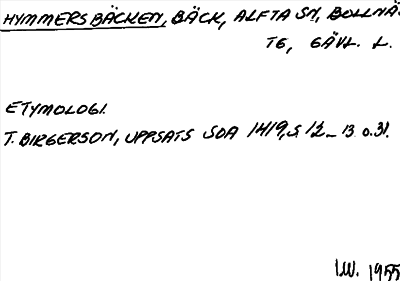 HYMMERSBÄCKEN, BÄCK, ALFTA SN, BOLLNÄ
TG, GÄVL. L.
ETYMOLOGI.
T. BIRGERSON, UPPSATS SOA 1419, S. 12-13 o. 31.
I.W. 1955